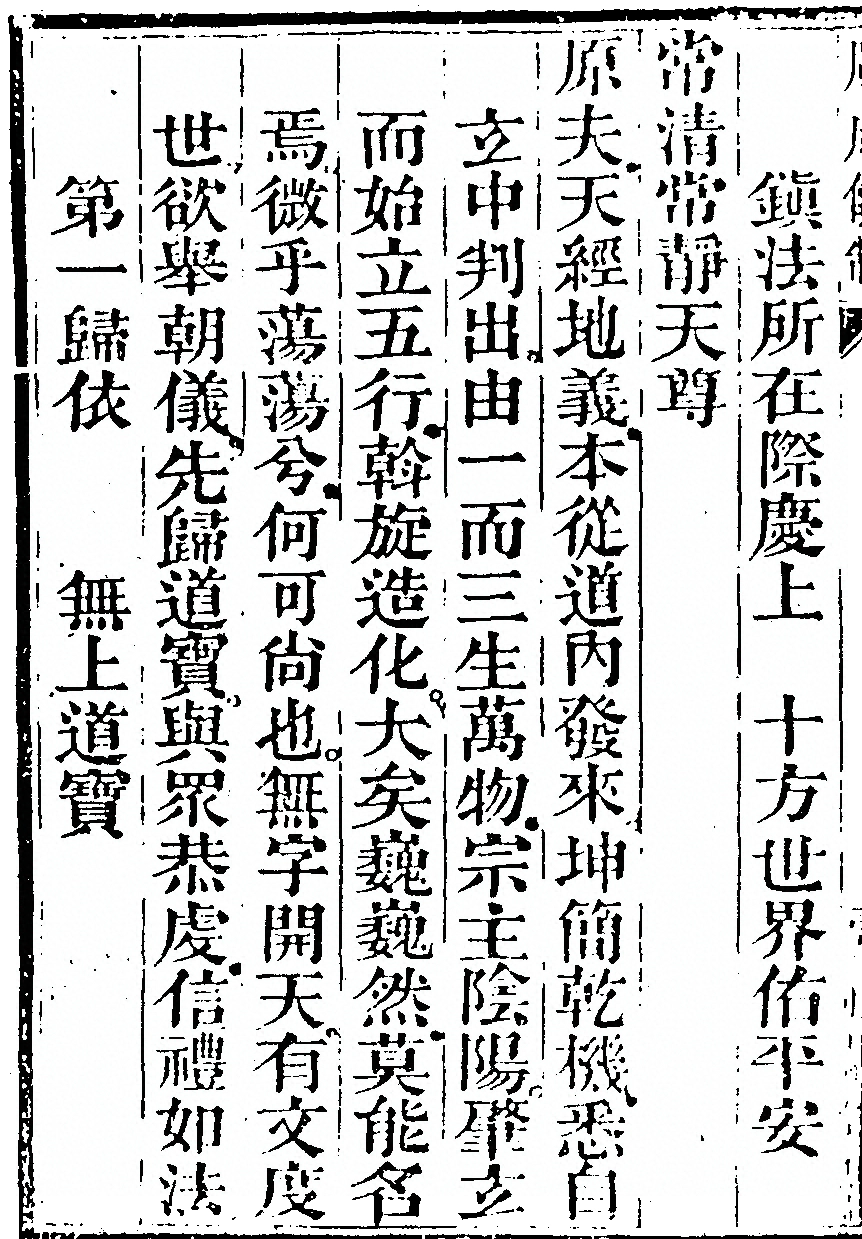 鎮法所在際慶上　十方世界佑平安
常清常靜天尊
原夫天經地義本從道內發來坤簡乾機悉自
立中判出由一而三生萬物宗主陰陽肇立
而始立五行斡旋造化大矣巍巍然莫能名
焉微乎蕩蕩兮何可尙也無字開天有文度
世欲舉朝儀先歸道寶與眾恭虔信禮如法
第一歸依　無上道寶